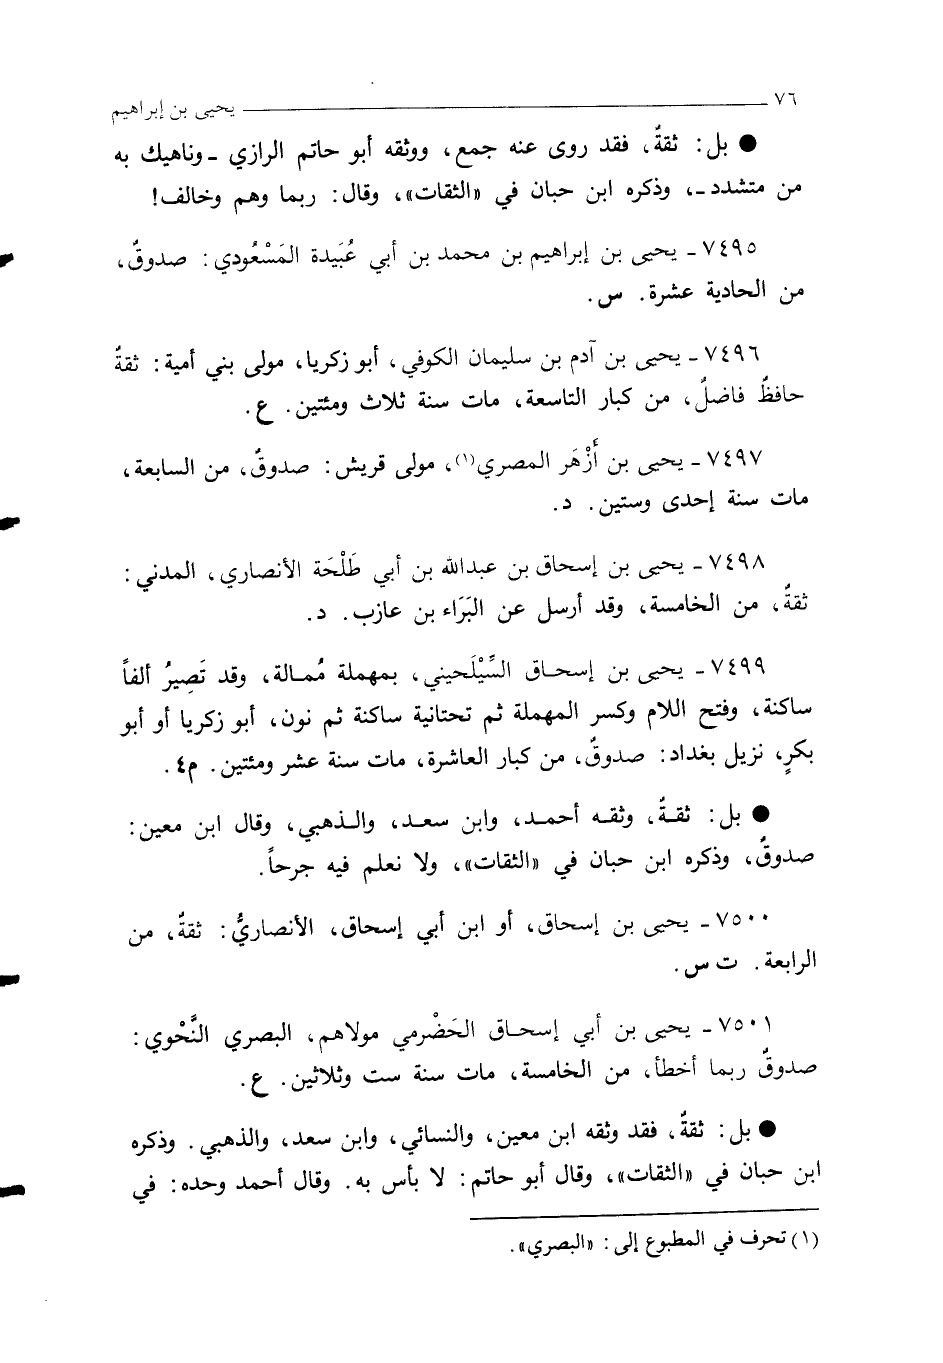 ٧٦ يحيى بن إبراهيم
● بل: ثقةٌ، فقد روى عنه جمع، ووثقه أبو حاتم الرازي ـ وناهيك به
من متشدد ـ، وذكره ابن حبان في «الثقات»، وقال: ربما وهم وخالف!
٧٤٩٥ ـ يحيى بن إبراهيم بن محمد بن أبي عُبَيدة المَسْعُودي: صدوقٌ،
من الحادية عشرة. س.
٧٤٩٦ ـ يحيى بن آدم بن سليمان الكوفي، أبو زكريا، مولى بني أمية: ثقةٌ
حافظٌ فاضلٌ، من كبار التاسعة، مات سنة ثلاث ومئتين. ع.
٧٤٩٧ ـ يحيى بن أَزْهَر المصري(١)، مولى قريش: صدوقٌ، من السابعة،
مات سنة إحدى وستين. د.
٧٤٩٨ ـ يحيى بن إسحاق بن عبدالله بن أبي طَلْحَة الأنصاري، المدني:
ثقةٌ، من الخامسة، وقد أرسل عن البَرَاء بن عازب. د.
٧٤٩٩ ـ يحيى بن إسحاق السِّيْلَحيني، بمهملة مُمالة، وقد تَصِيرُ ألفاً
ساكنة، وفتح اللام وكسر المهملة ثم تحتانية ساكنة ثم نون، أبو زكريا أو أبو
بكرٍ، نزيل بغداد: صدوقٌ، من كبار العاشرة، مات سنة عشر ومئتين. م٤.
● بل: ثقةٌ، وثقه أحمد، وابن سعد، والذهبي، وقال ابن معين:
صدوقٌ، وذكره ابن حبان في «الثقات»، ولا نعلم فيه جرحاً.
٧٥٠٠ ـ يحيى بن إسحاق، أو ابن أبي إسحاق، الأنصاريُّ: ثقةٌ، من
الرابعة. ت س.
٧٥٠١ ـ يحيى بن أبي إسحاق الحَضْرمي مولاهم، البصري النَّحْوي:
صدوقٌ ربما أخطأ، من الخامسة، مات سنة ست وثلاثين. ع.
● بل: ثقةٌ، فقد وثقه ابن معين، والنسائي، وابن سعد، والذهبي. وذكره
ابن حبان في «الثقات»، وقال أبو حاتم: لا بأس به. وقال أحمد وحده: في
(١) تحرف في المطبوع إلى: «البصري».